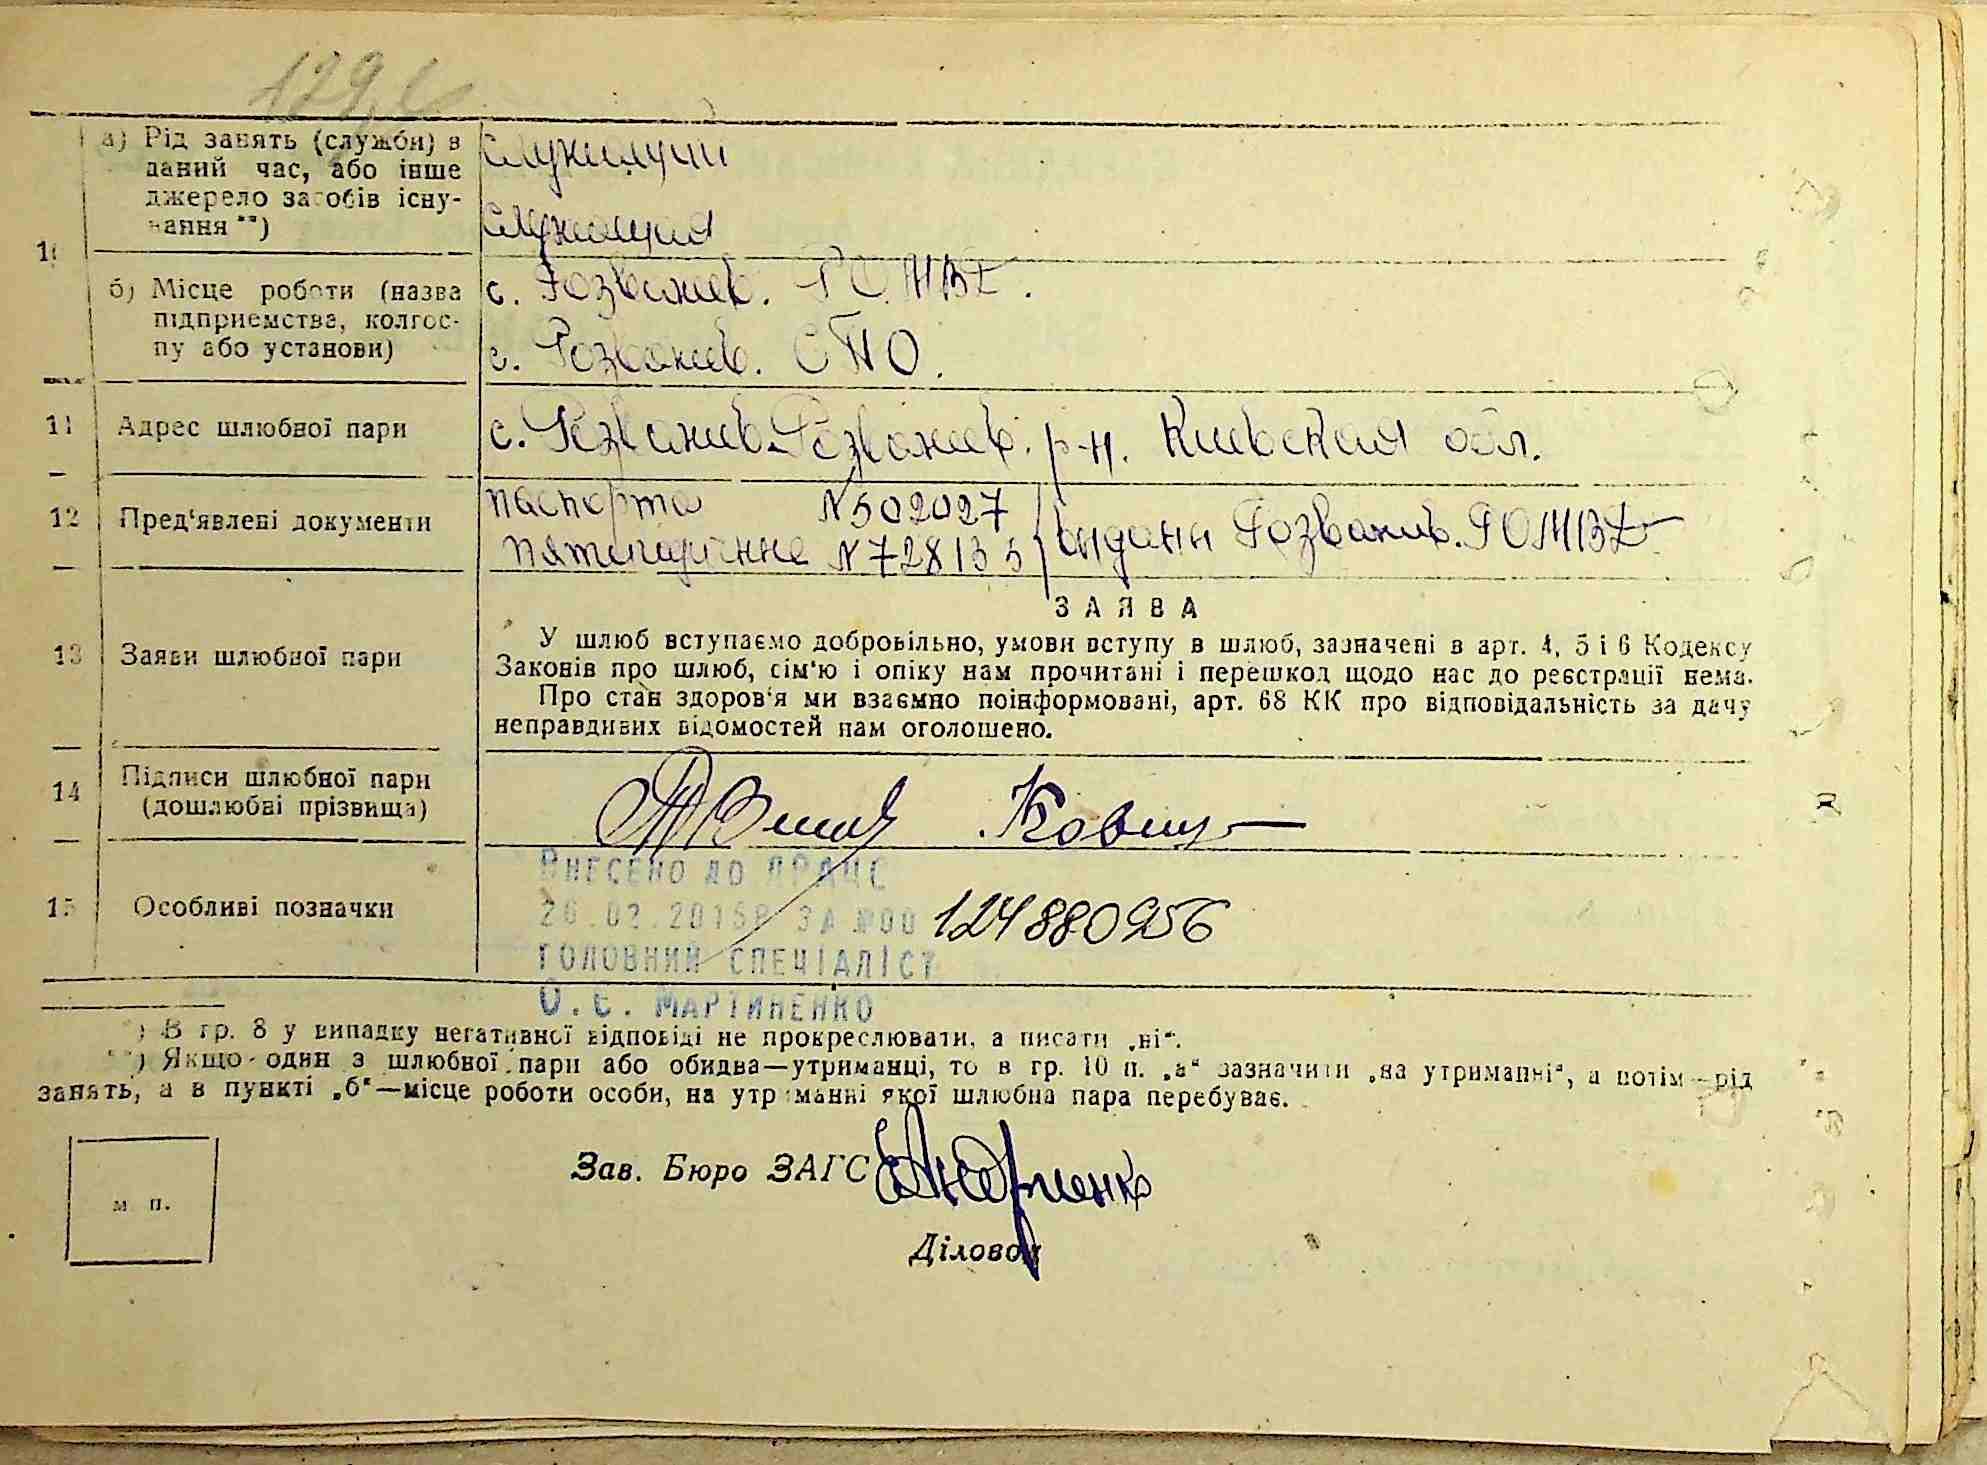 а) Рід занять (служби) в
даний час, або інше
джерело засобів існу-
вання **)
служащий
служащая
10
б) Місце роботи (назва
підприемства, колгос-
пу або установи)
с. Розважев. РО МВД.
с. Розважев. СПО.
11 Адрес шлюбної пари
с. Розважев Розважев. р-н. Киевская обл.
12 Пред'явлені документи
паспорта №502027
пятигодичние №728135
видани Розважев. РОМВД
ЗАЯВА
13 Заяви шлюбної пари
У шлюб вступаємо добровільно, умови вступу в шлюб, зазначені в арт. 4, 5 і 6 Кодексу
Законів про шлюб, сім'ю і опіку нам прочитані і перешкод щодо нас до реєстрації нема.
Про стан здоров'я ми взаємно поінформовані, арт. 68 КК про відповідальність за дачу
неправдивих відомостей нам оголошено.
14 Підписи шлюбної пари
(дошлюбні прізвища)
15 Особливі позначки
ВНЕСЕНО ДО ДРАЦС
26.02.2015Р ЗА №00 124880956
ГОЛОВНИЙ СПЕЦІАЛІСТ
О.Є. МАРТИНЕНКО
*) В гр. 8 у випадку негативної відповіді не прокреслювати, а писати „ні“.
**) Якщо один з шлюбної пари або обидва—утриманці, то в гр. 10 п. „а“ зазначити „на утриманні“, а потім—рід
занять, а в пункті „б“—місце роботи особи, на утриманні якої шлюбна пара перебуває.
Зав. Бюро ЗАГС Андриенко
м п.
Діловод